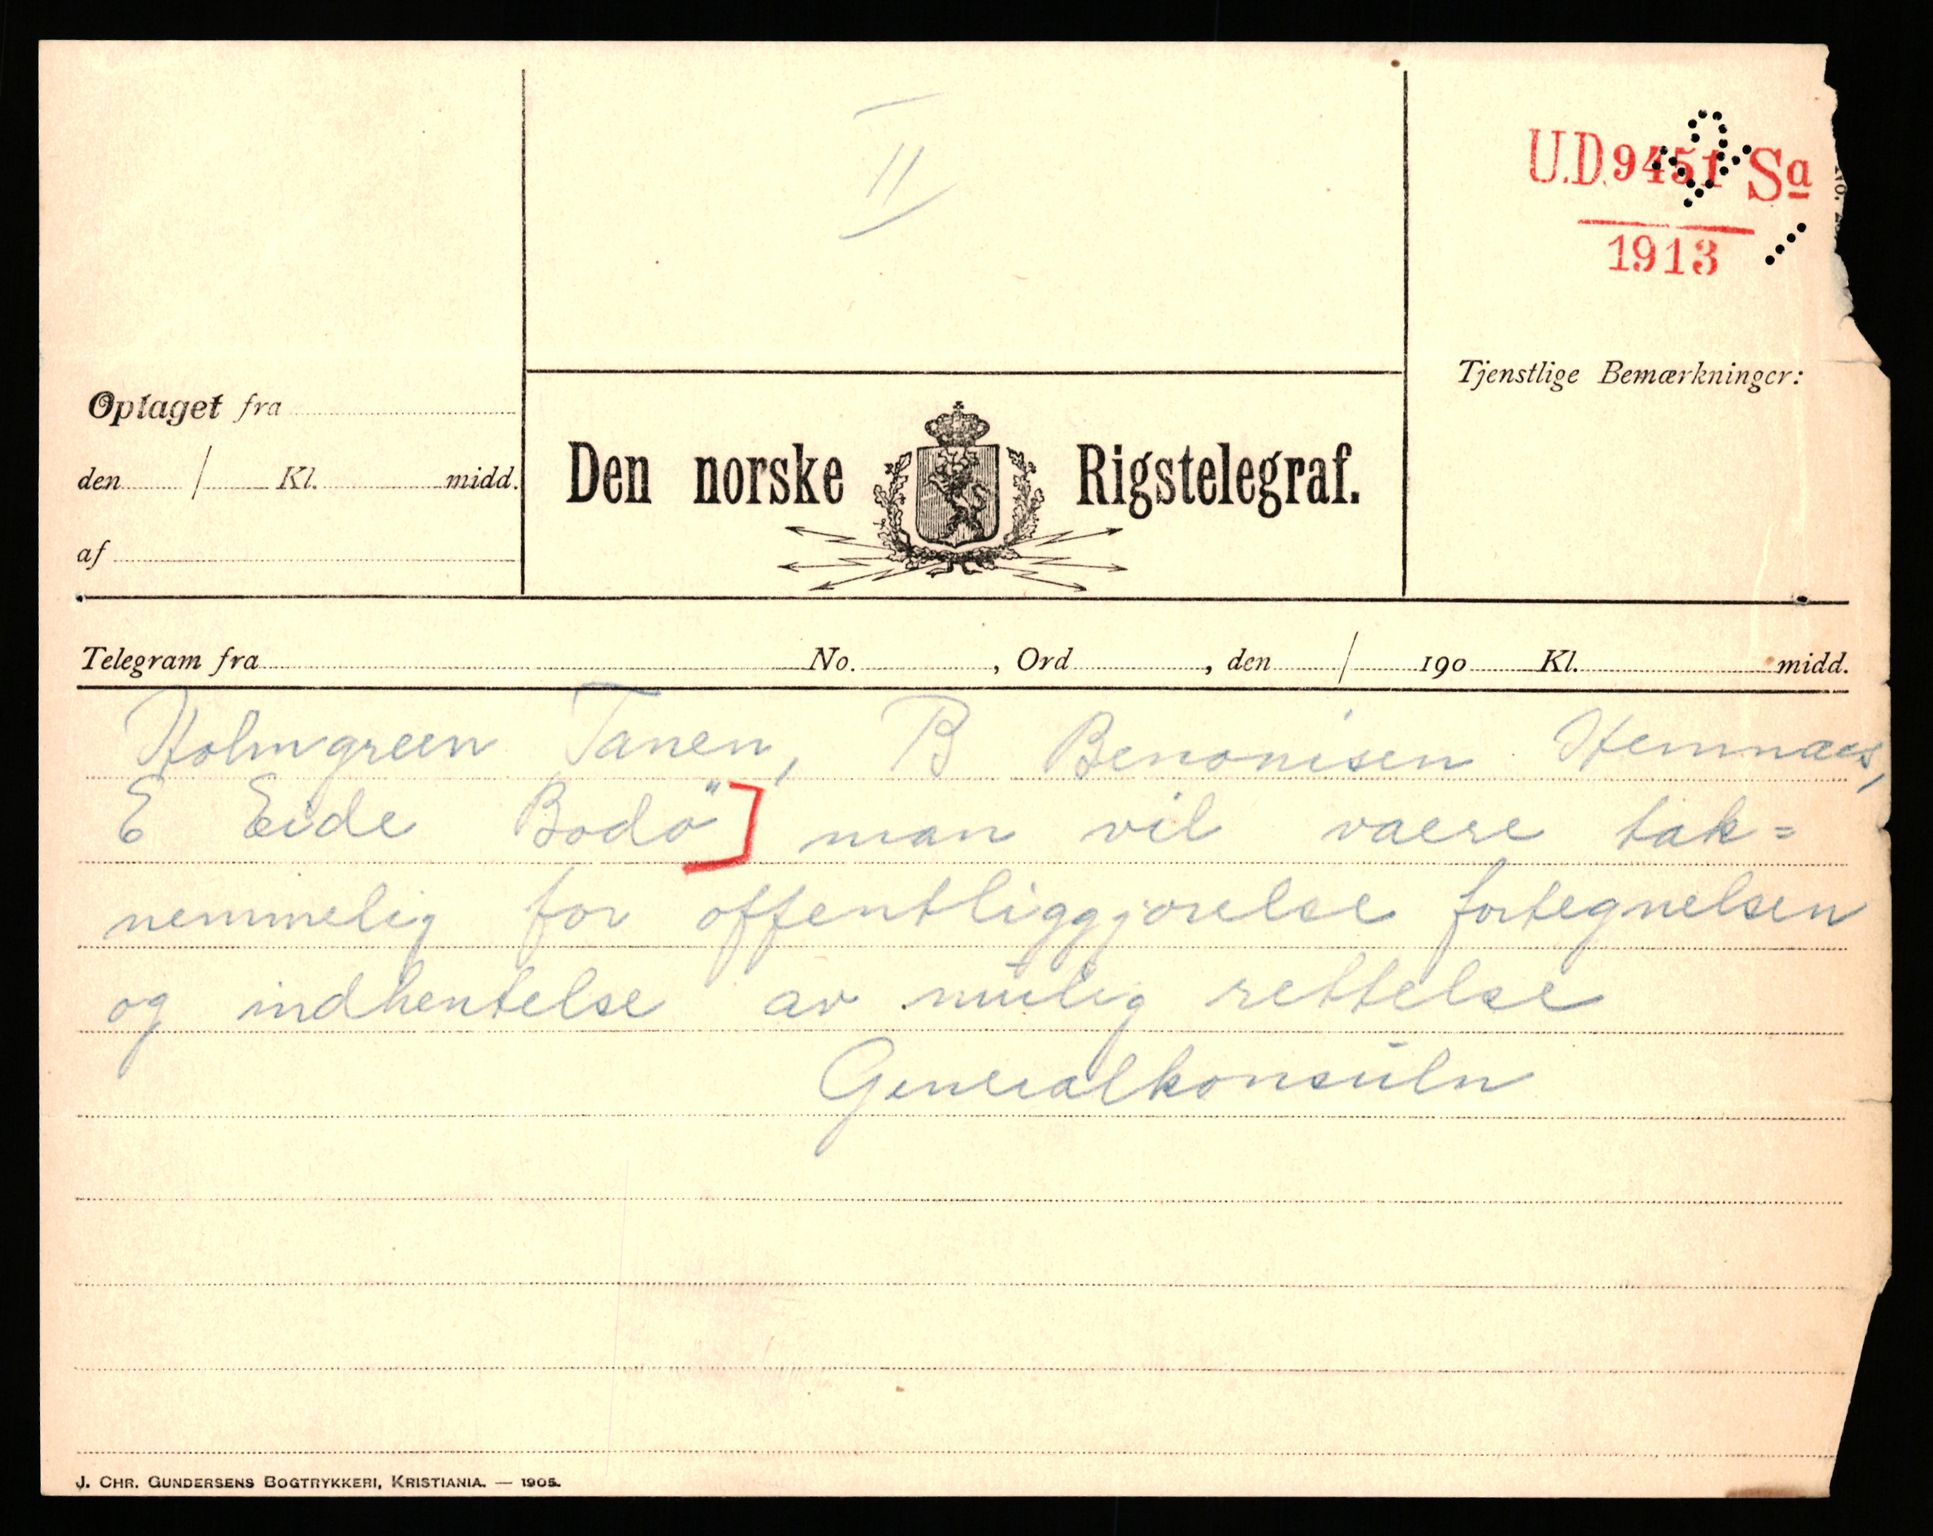 II
U.D. 9451 Sa
1913
Tjenstlige Bemærkninger:
Optaget fra
den / Kl. midd.
af
Den norske Rigstelegraf.
Telegram fra No. , Ord , den / 190 Kl. midd.
Holmgreen Tanen, B Benonisen Hemnaes,
E Eide Bodö] man vil vaere tak=
nemmelig for offentliggjorelse fortegnelsen
og indhentelse av mulig rettelse
Generalkonsuln
J. CHR. GUNDERSENS BOGTRYKKERI, KRISTIANIA. — 1905.